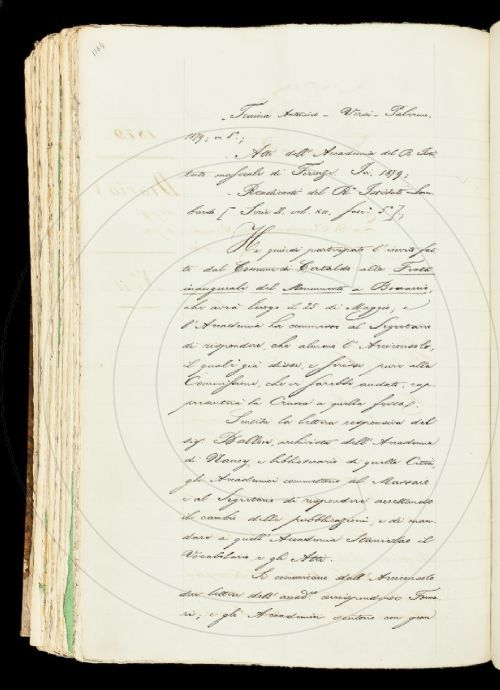 1104
- Traina Antonino - Versi - Palermo,
1879; in 8°;
- Atti dell'Accademia del R. Isti-
tuto musicale di Firenze. Ivi, 1879;
- Rendiconti del R. Istituto Lom-
bardo [Serie 2, vol. XII, fasc. 5°];
Ha quindi partecipato l'invito fat-
to dal Comune di Certaldo alla Festa
inaugurale del Monumento a Boccaccio,
che avrà luogo il 25 di Maggio, e
l'Accademia ha commesso al Segretario
di rispondere che almeno l'Arciconsolo,
il quale già disse, e scrisse pure alla
Commissione, che vi sarebbe andato, rap-
presenterà la Crusca a quella festa.
Sentita la lettera responsiva del
sig. Ballon, archivista dell'Accademia
di Nancy e bibliotecario di quella Città,
gli Accademici commettono al Massaro
e al Segretario di rispondere accettando
il cambio delle pubblicazioni, e di man-
dare a quell'Accademia Stanislao il
Vocabolario e gli Atti.
Si comunicano dall'Arciconsolo
due lettere dell'accad.co corrispondente
ri; e gli Accademici sentono con gran